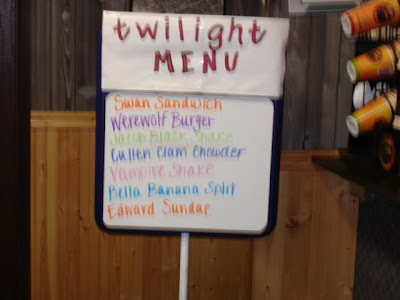 twilight
MENU
Swan Sandwich
Werewolf Burger
Jacob Black Shake
Cullen Clam Chowder
Vampire Shake
Bella Banana Split
Edward Sundae